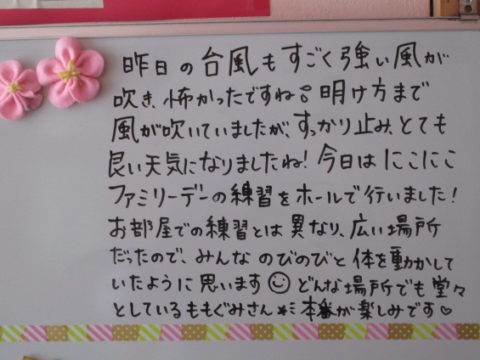 昨日の台風もすごく強い風が
吹き、怖かったですね。明け方まで
風が吹いていましたが、すっかり止み、とても
良い天気になりましたね!今日はにこにこ
ファミリーデーの練習をホールで行いました!
お部屋での練習とは異なり、広い場所
だったので、みんなのびのびと体を動かして
いたように思います☺どんな場所でも堂々
としているももぐみさん 本番が楽しみです♡